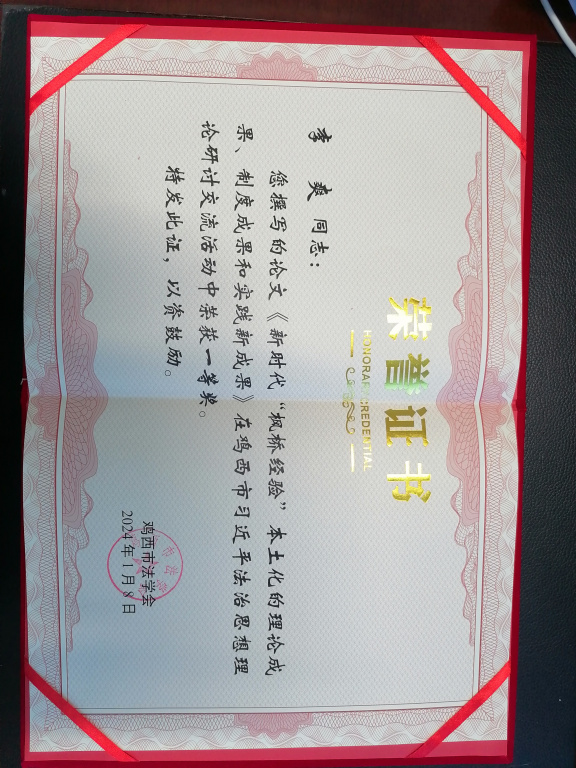 荣誉证书
HONORARY CREDENTIAL
李 爽 同志：
您撰写的论文《新时代“枫桥经验”本土化的理论成
果、制度成果和实践新成果》在鸡西市习近平法治思想理
论研讨交流活动中荣获一等奖。
特发此证，以资鼓励。
鸡西市法学会
2024年1月8日